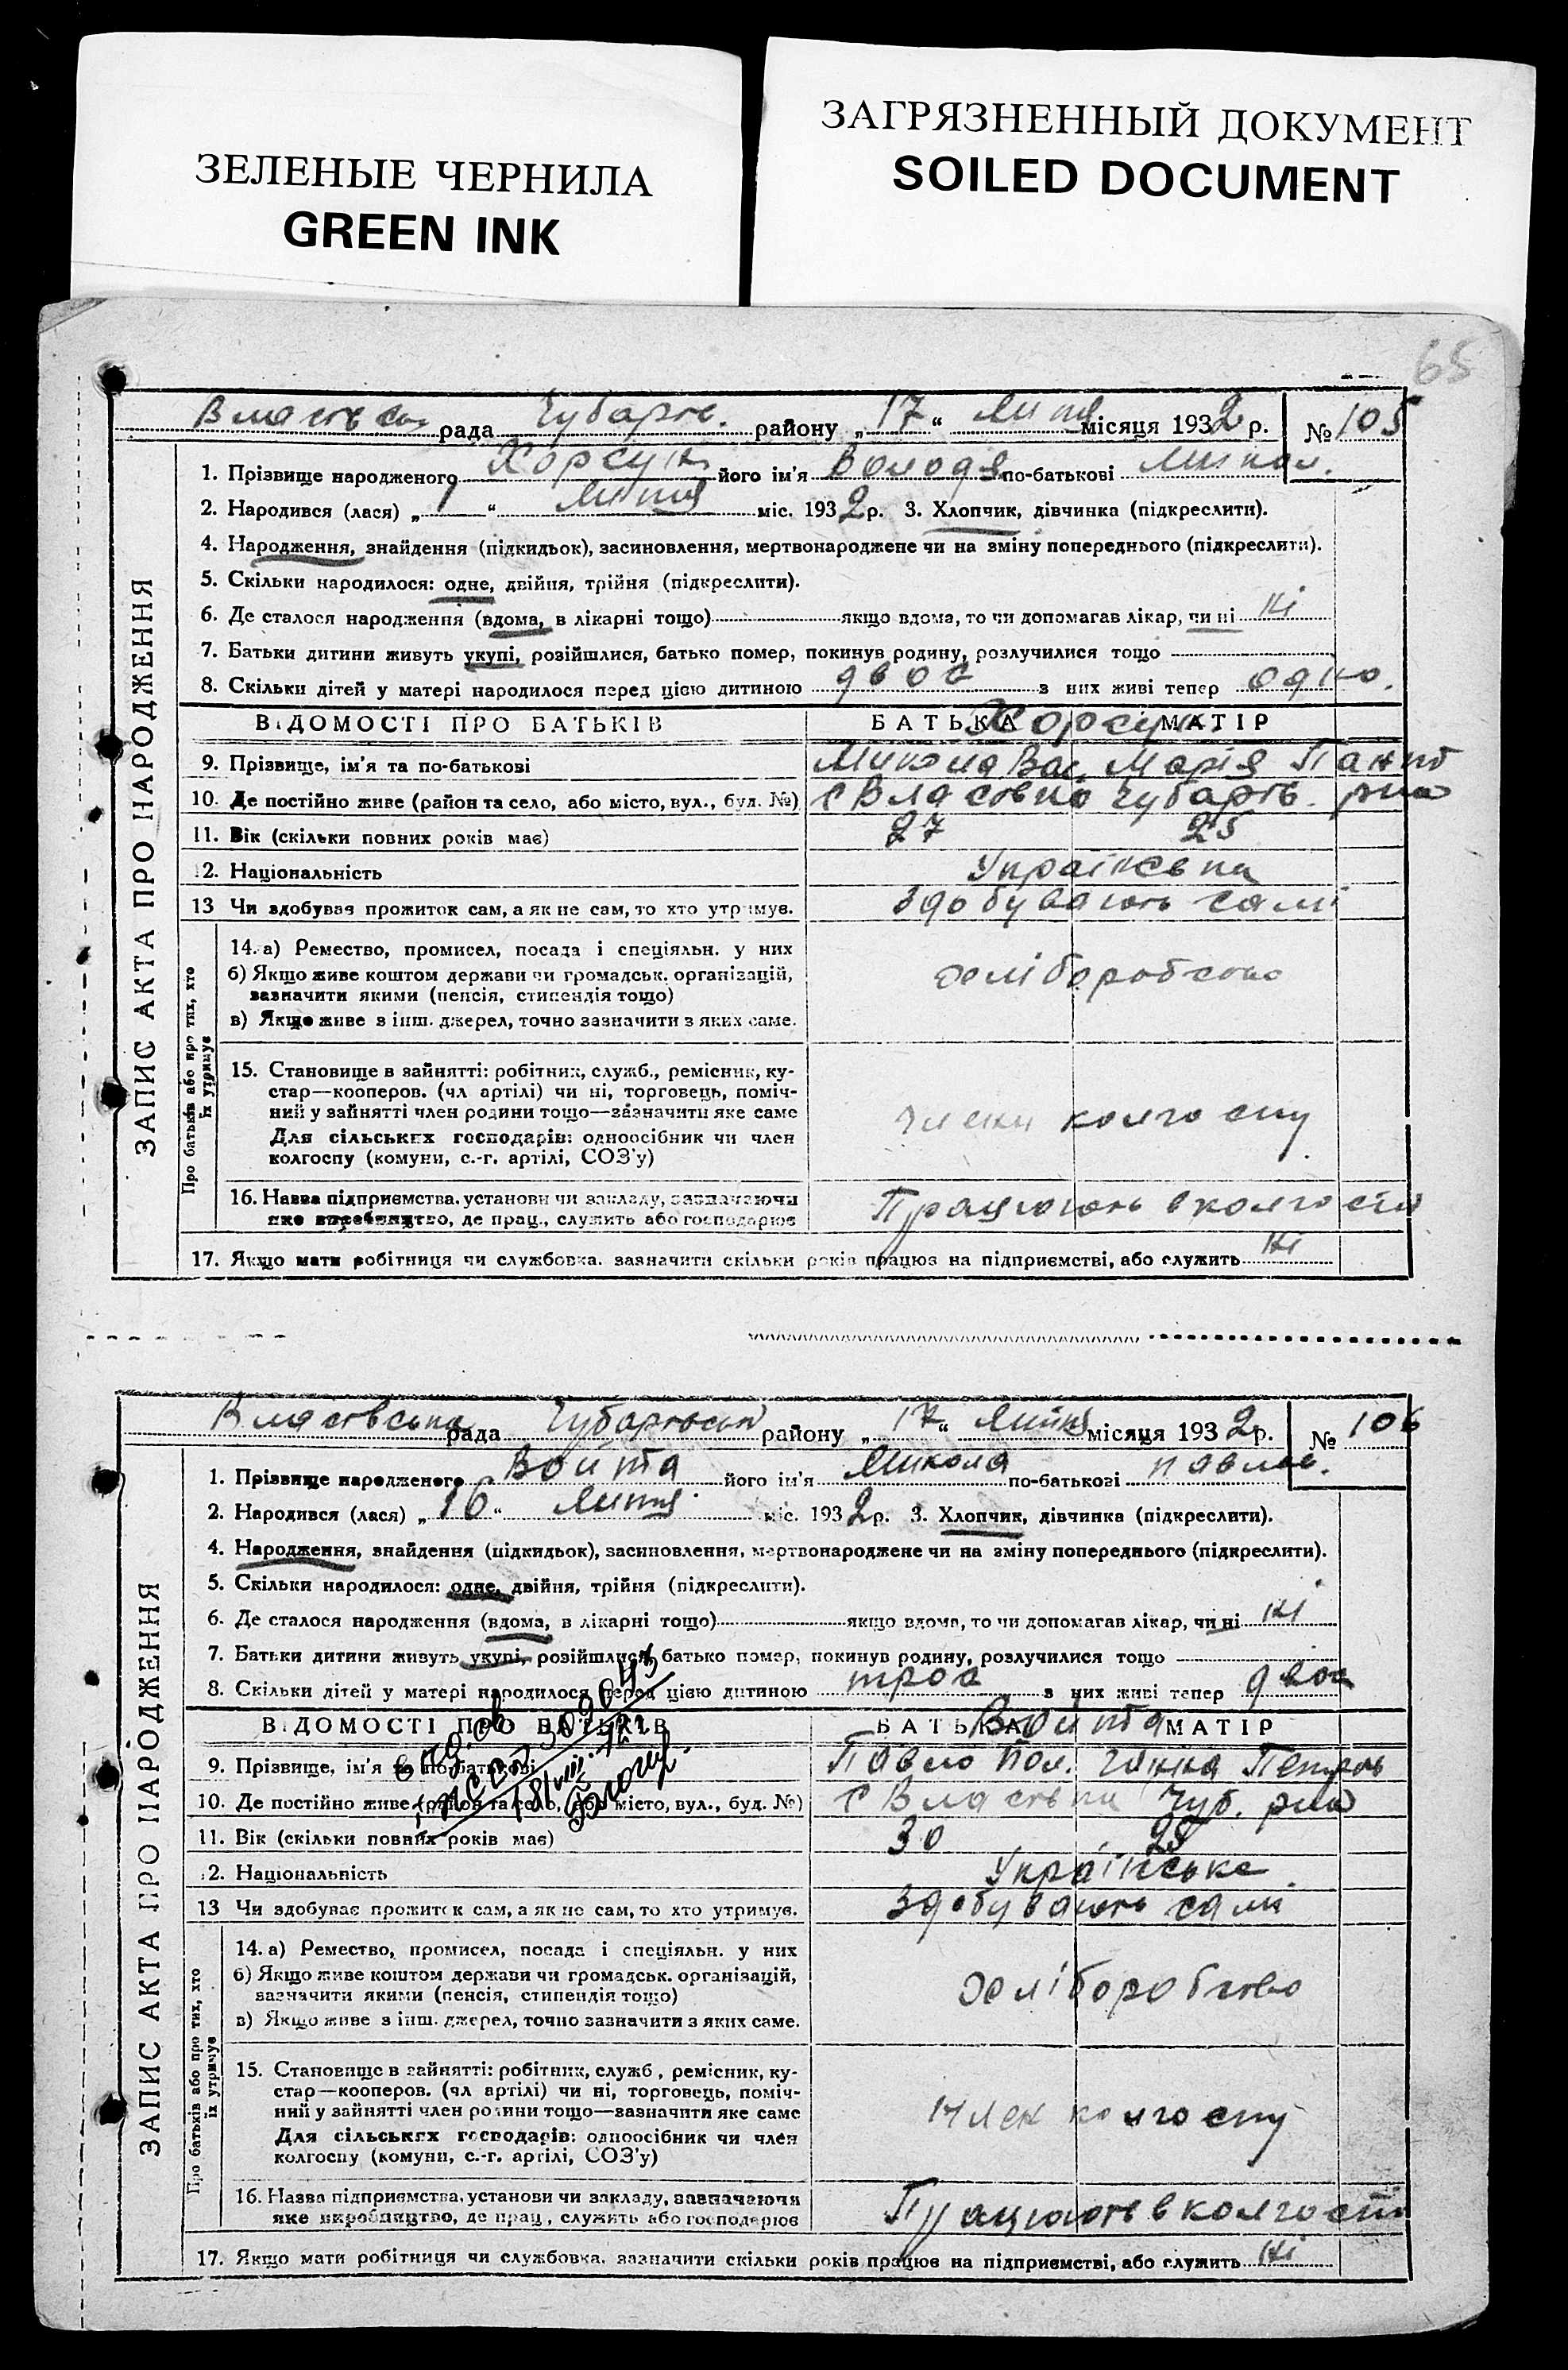 ЗЕЛЕНЫЕ ЧЕРНИЛА
GREEN INK
ЗАГРЯЗНЕННЫЙ ДОКУМЕНТ
SOILED DOCUMENT
65
ЗАПИС АКТА ПРО НАРОДЖЕННЯ
рада Чубарів. району „17“ Липня місяця 1932 р. № 105
1. Прізвище народженого Хорсун його ім'я Володя по-батькові Микол.
2. Народився (лася) „1“ Липня міс. 1932 р. 3. Хлопчик, дівчинка (підкреслити).
4. Народження, знайдення (підкидьок), засиновлення, мертвонароджене чи на зміну попереднього (підкреслити).
5. Скільки народилося: одне, двійня, трійня (підкреслити).
6. Де сталося народження (вдома, в лікарні тощо) якщо вдома, то чи допомагав лікар, чи ні Ні
7. Батьки дитини живуть укупі, розійшлися, батько помер, покинув родину, розлучилися тощо
8. Скільки дітей у матері народилося перед цією дитиною двоє з них живі тепер одно.
ВІДОМОСТІ ПРО БАТЬКІВ БАТЬКА МАТІР
Хорсун
9. Прізвище, ім'я та по-батькові Микола Вас. Марія
10. Де постійно живе (район та село, або місто, вул., буд. №) с Власовка Чубарів. рна
11. Вік (скільки повних років має) 27 25
12. Національність
13 Чи здобуває прожиток сам, а як не сам, то хто утримує. Здобувають самі
Про батьків або про тих, хто їх утримує
14. а) Ремество, промисел, посада і спеціяльн. у них
б) Якщо живе коштом держави чи громадськ. організацій,
зазначити якими (пенсія, стипендія тощо)
хліборобство
в) Якщо живе з інш. джерел, точно зазначити з яких саме.
15. Становище в зайнятті: робітник, служб., ремісник, ку-
стар—кооперов. (чл артілі) чи ні, торговець, поміч-
ний у зайнятті член родини тощо—зазначити яке саме
Для сільських господарів: одноосібник чи член
колгоспу (комуни, с.-г. артілі, СОЗ'у)
члени колгоспу
16. Назва підприємства, установи чи закладу, зазначаючи
яке виробництво, де прац., служить або господарює
Працюють в колгоспі
17. Якщо мати робітниця чи службовка, зазначити скільки років працює на підприємстві, або служить Ні
ЗАПИС АКТА ПРО НАРОДЖЕННЯ
Власівська рада району „17“ Липня місяця 1932 р. № 106
1. Прізвище народженого Войта його ім'я Микола по-батькові Павлов.
2. Народився (лася) „16“ Липня міс. 1932 р. 3. Хлопчик, дівчинка (підкреслити).
4. Народження, знайдення (підкидьок), засиновлення, мертвонароджене чи на зміну попереднього (підкреслити).
5. Скільки народилося: одне, двійня, трійня (підкреслити).
6. Де сталося народження (вдома, в лікарні тощо) якщо вдома, то чи допомагав лікар, чи ні Ні
7. Батьки дитини живуть укупі, розійшлися, батько помер, покинув родину, розлучилися тощо
8. Скільки дітей у матері народилося перед цією дитиною троє з них живі тепер двоє
ВІДОМОСТІ ПРО БАТЬКІВ БАТЬКА МАТІР
Войта
9. Прізвище, ім'я та по-батькові Павло Пол. Ганна Петрів
10. Де постійно живе (район та село, або місто, вул., буд. №) с Чуб. рна
11. Вік (скільки повних років має) 30
12. Національність Українське
13 Чи здобуває прожиток сам, а як не сам, то хто утримує. Здобувають самі
Про батьків або про тих, хто їх утримує
14. а) Ремество, промисел, посада і спеціяльн. у них
б) Якщо живе коштом держави чи громадськ. організацій,
зазначити якими (пенсія, стипендія тощо)
хліборобство
в) Якщо живе з інш. джерел, точно зазначити з яких саме.
15. Становище в зайнятті: робітник, служб, ремісник, ку-
стар—кооперов. (чл артілі) чи ні, торговець, поміч-
ний у зайнятті член родини тощо—зазначити яке саме
Для сільських господарів: одноосібник чи член
колгоспу (комуни, с.-г. артілі, СОЗ'у)
член колгоспу
16. Назва підприємства, установи чи закладу, зазначаючи
яке виробництво, де прац, служить або господарює
Працюють в колгоспі
17. Якщо мати робітниця чи службовка, зазначити скільки років працює на підприємстві, або служить Ні